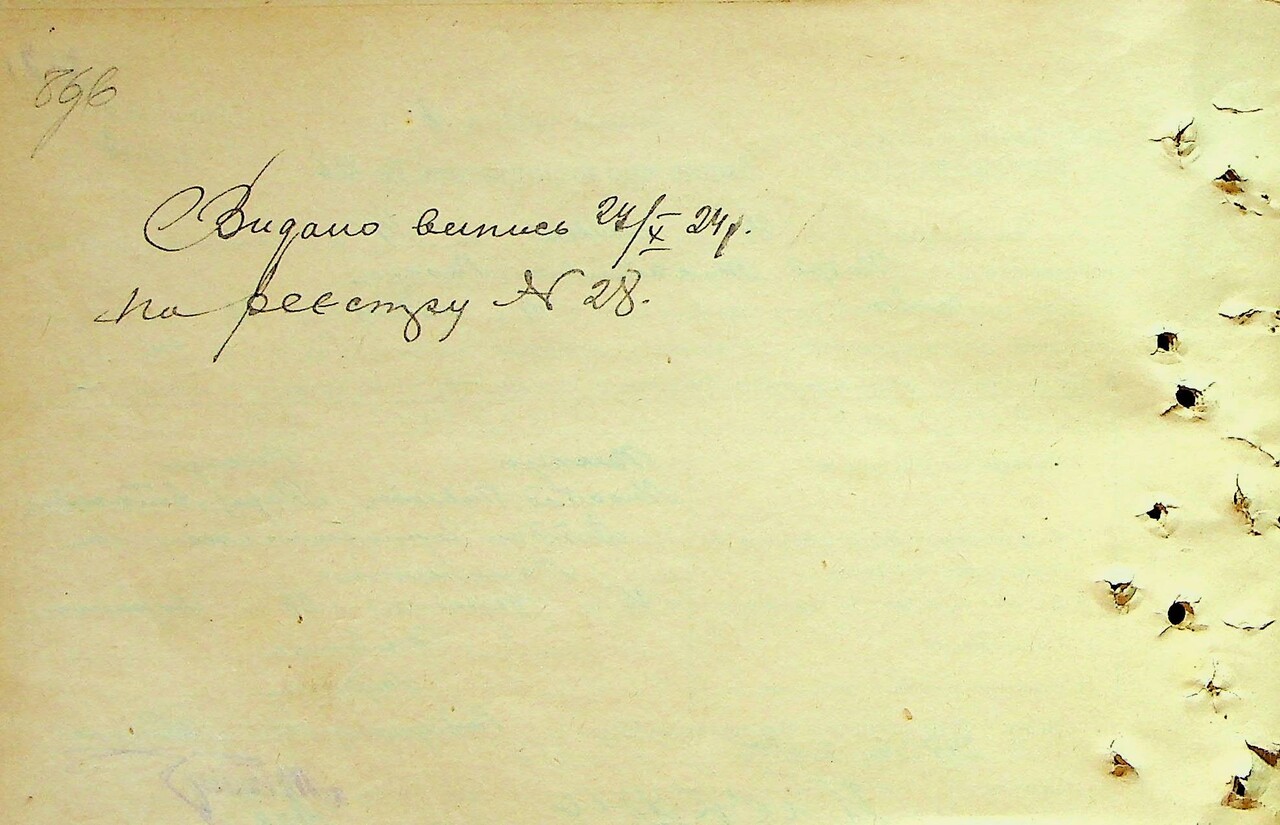 89б
Видано випись 27/X 24р.
по реєстру № 28.